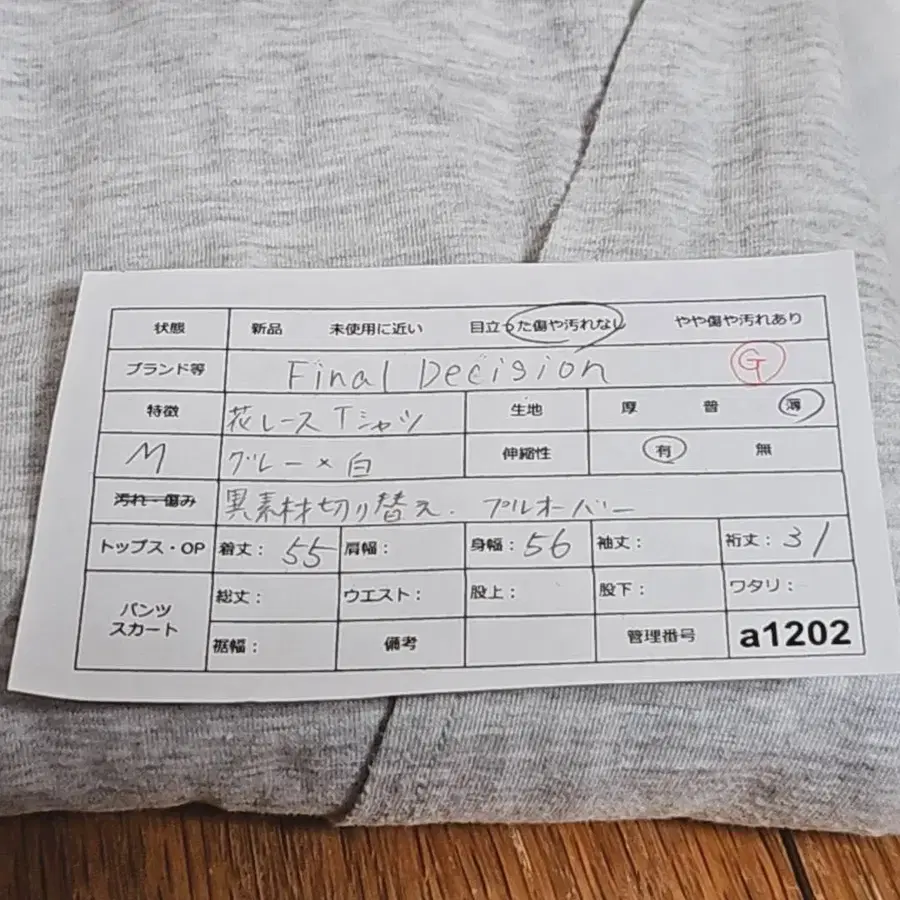 状態 新品 未使用に近い 目立った傷や汚れなし やや傷や汚れあり
ブランド等 Final Decision G
特徴 花レースTシャツ 生地 厚 普 薄
M グレー×白 伸縮性 有 無
汚れ・傷み 異素材切り替え. プルオーバー
トップス・OP 着丈: 55 肩幅: 身幅: 56 袖丈: 裄丈: 31
パンツ スカート 総丈: ウエスト: 股上: 股下: ワタリ:
裾幅: 備考 管理番号 a1202